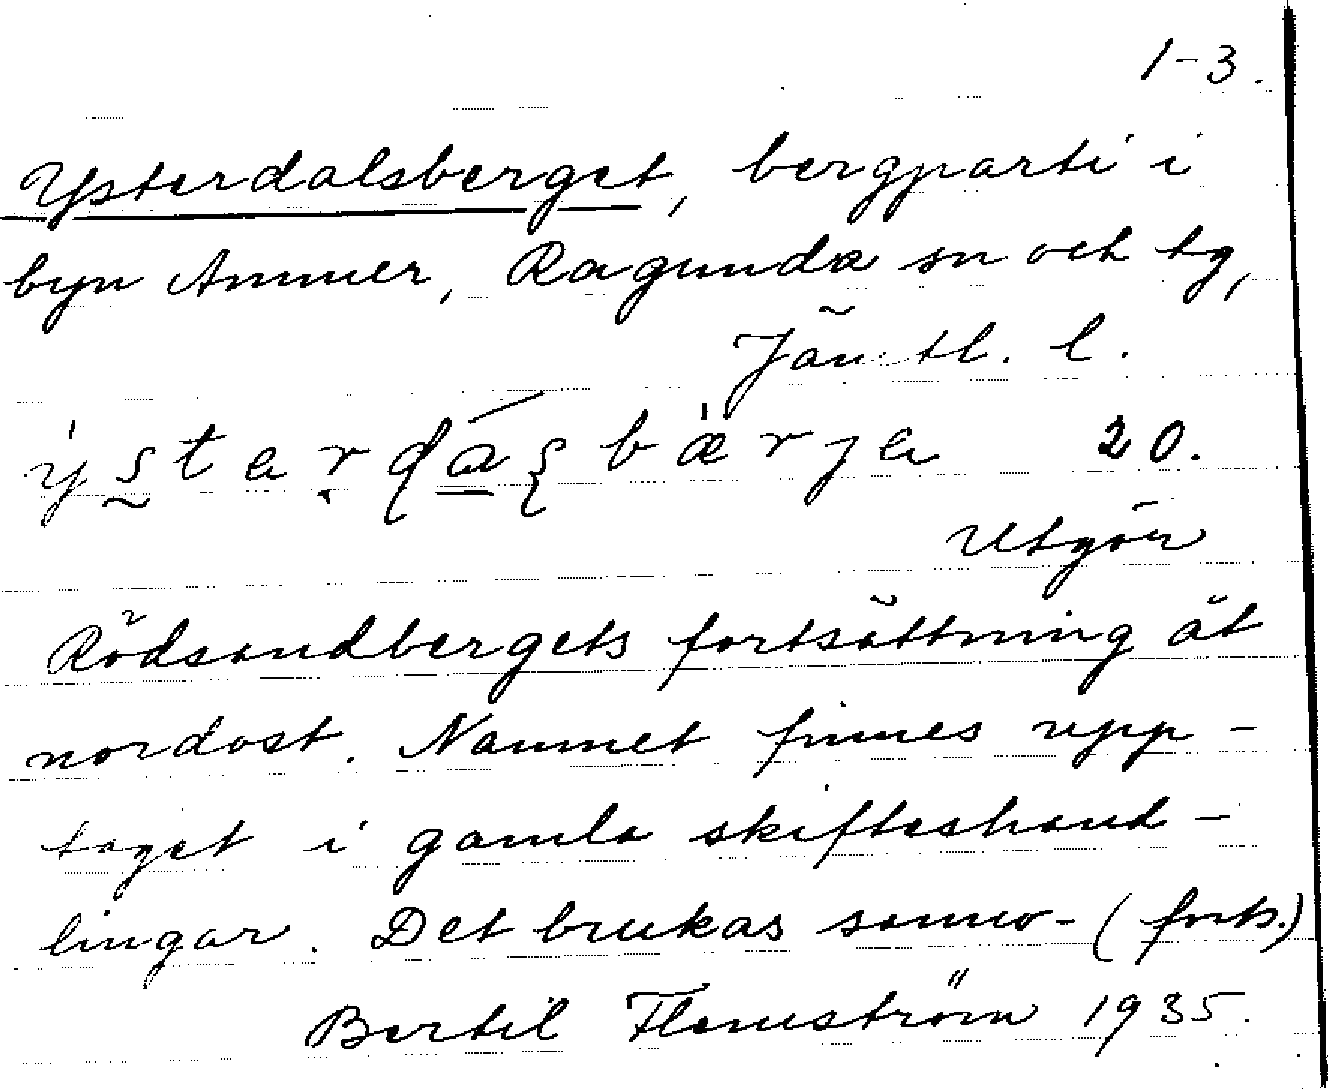 1-3.
Ysterdalsberget, bergparti i
byn Ammer, Ragunda sn och tg,
Jämtl. l.
20.
Utgör
Rödsandbergets fortsättning åt
nordost. Namnet finnes upp-
taget i gamla skifteshand-
lingar. Det brukas numo- (forts.)
Bertil Flemström 1935.